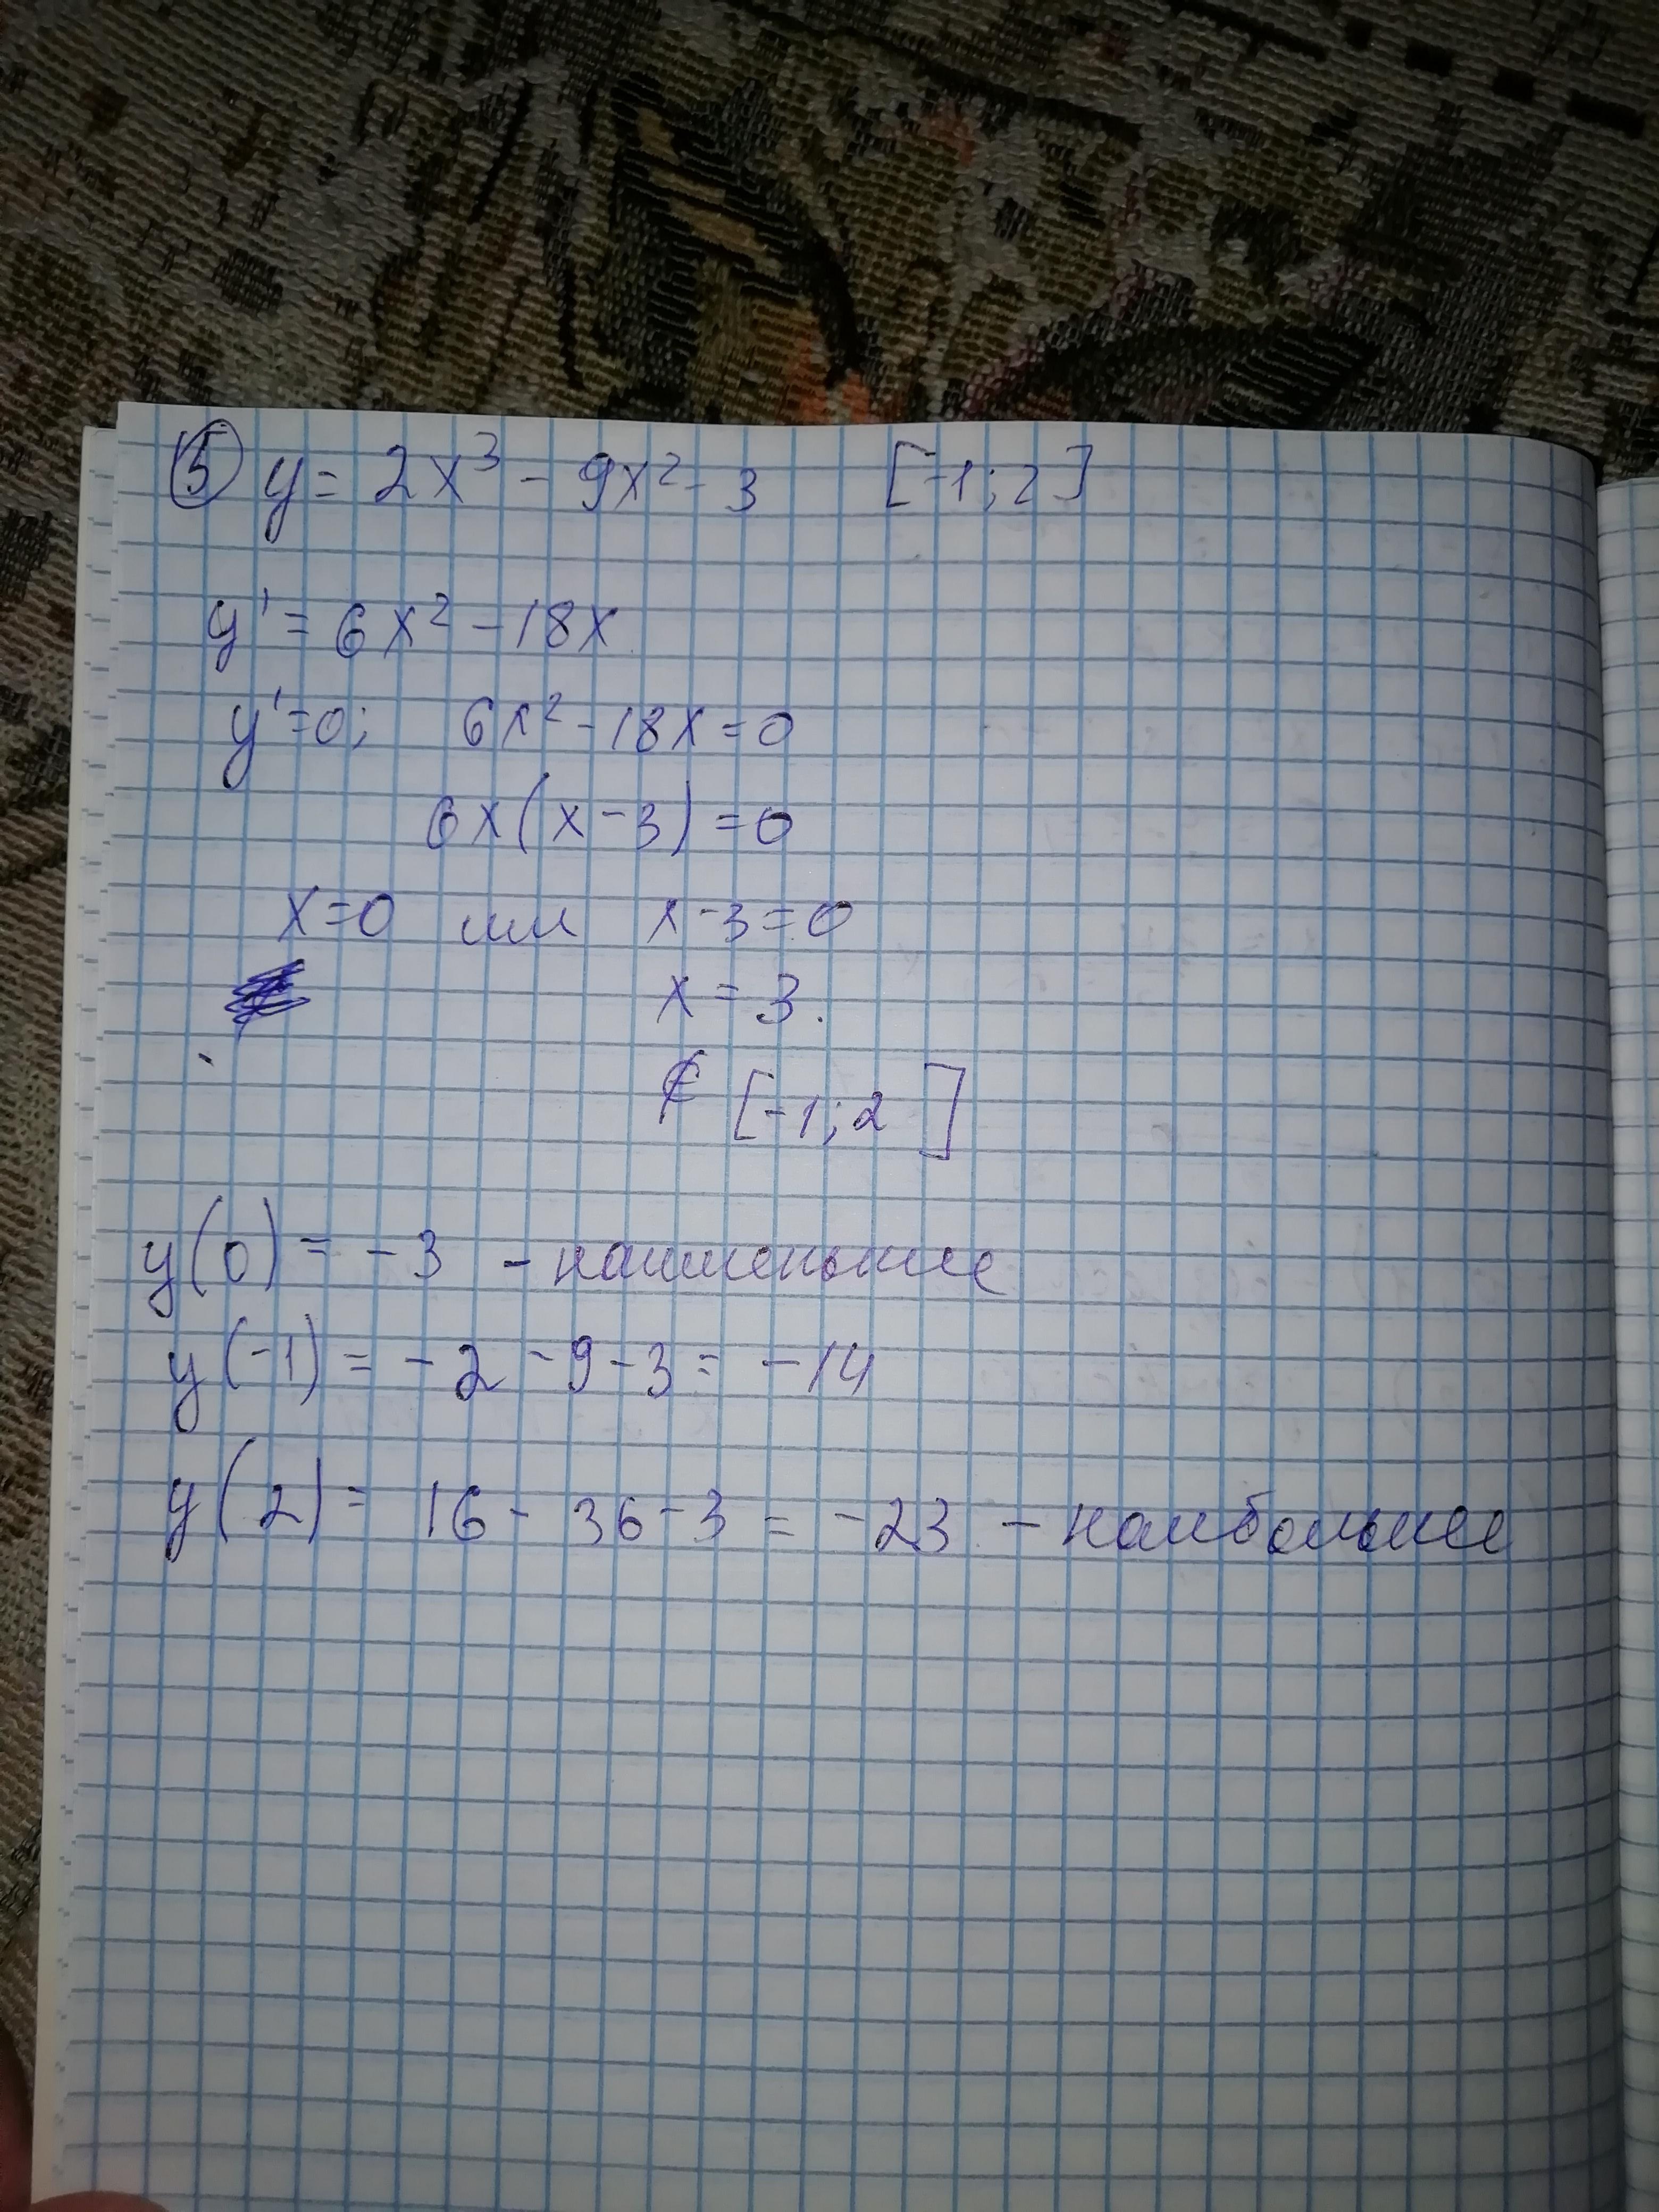 ⑤ y = 2x³ - 9x² - 3 [-1; 2]
y' = 6x² - 18x
y' = 0; 6x² - 18x = 0
6x(x - 3) = 0
x = 0 или x - 3 = 0
x = 3.
∉ [-1; 2]
y(0) = -3 - наименьшее
y(-1) = -2 - 9 - 3 = -14
y(2) = 16 - 36 - 3 = -23 - наибольшее